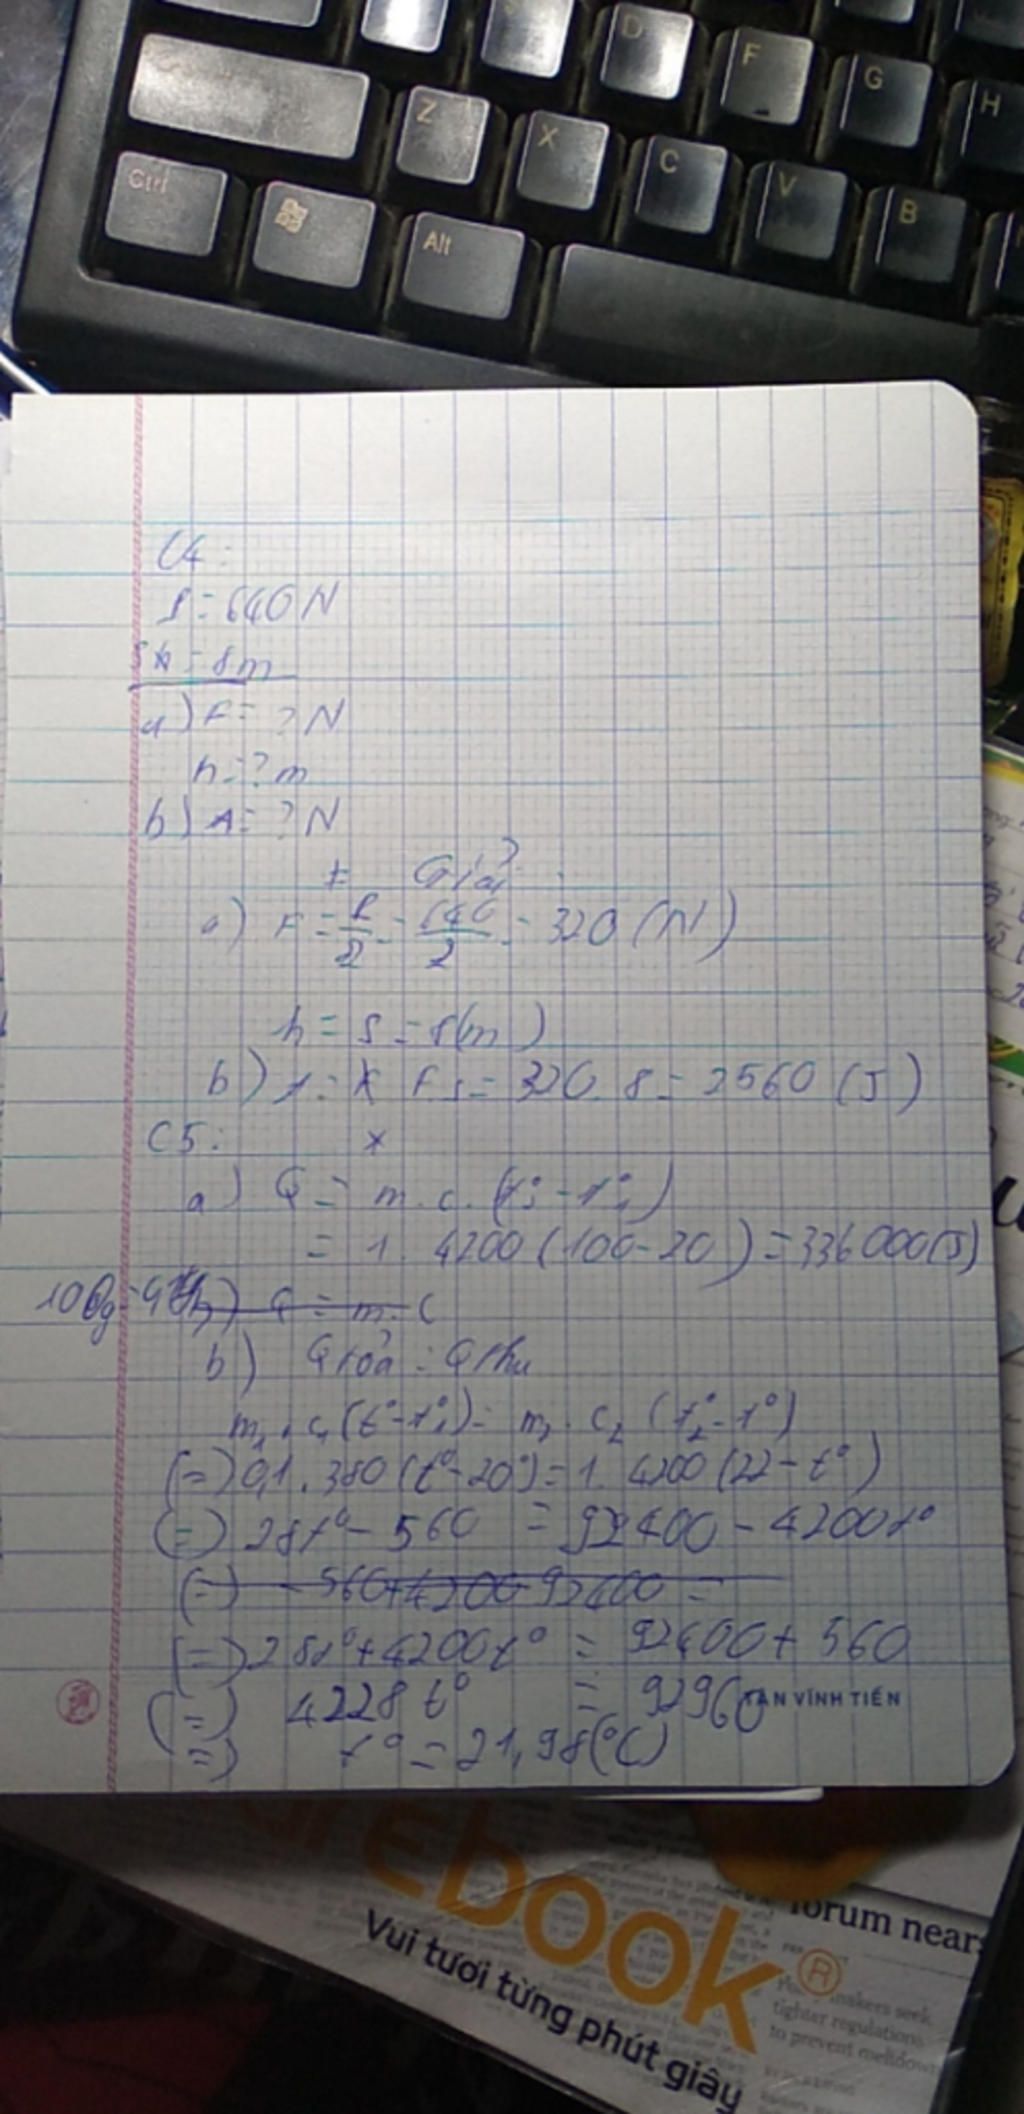 Z X C V B
D F G H
Ctrl
Alt
C4:
P = 640 N
s = 8m
a) F = ? N
h = ? m
b) A = ? N
Giải
a) F = P/2 = 640/2 = 320 (N)
h = s = 8(m)
b) A = F s = 320. 8 = 2560 (J)
C5:
a) Q = m.c. (t°2 - t°1)
= 1. 4200 (100-20) = 336000(J)
b) Q = m. C
b) Q toả = Q thu
m1. c1 (t° - t°1) = m2. c2 (t°2 - t°)
(=) 0,1. 380 (t° - 20°) = 1. 4200 (22 - t°)
(=) 28t° - 560 = 92400 - 4200t°
(=) - 560+4200-92400 =
(=) 28t° + 4200t° = 92400 + 560
(=) 4228 t° = 92960
TÂN VĨNH TIẾN
=) t° = 21,98(°C)
book
®
Vui tươi từng phút giây
forum near
makers seek
tighter regulations
to prevent meltdown